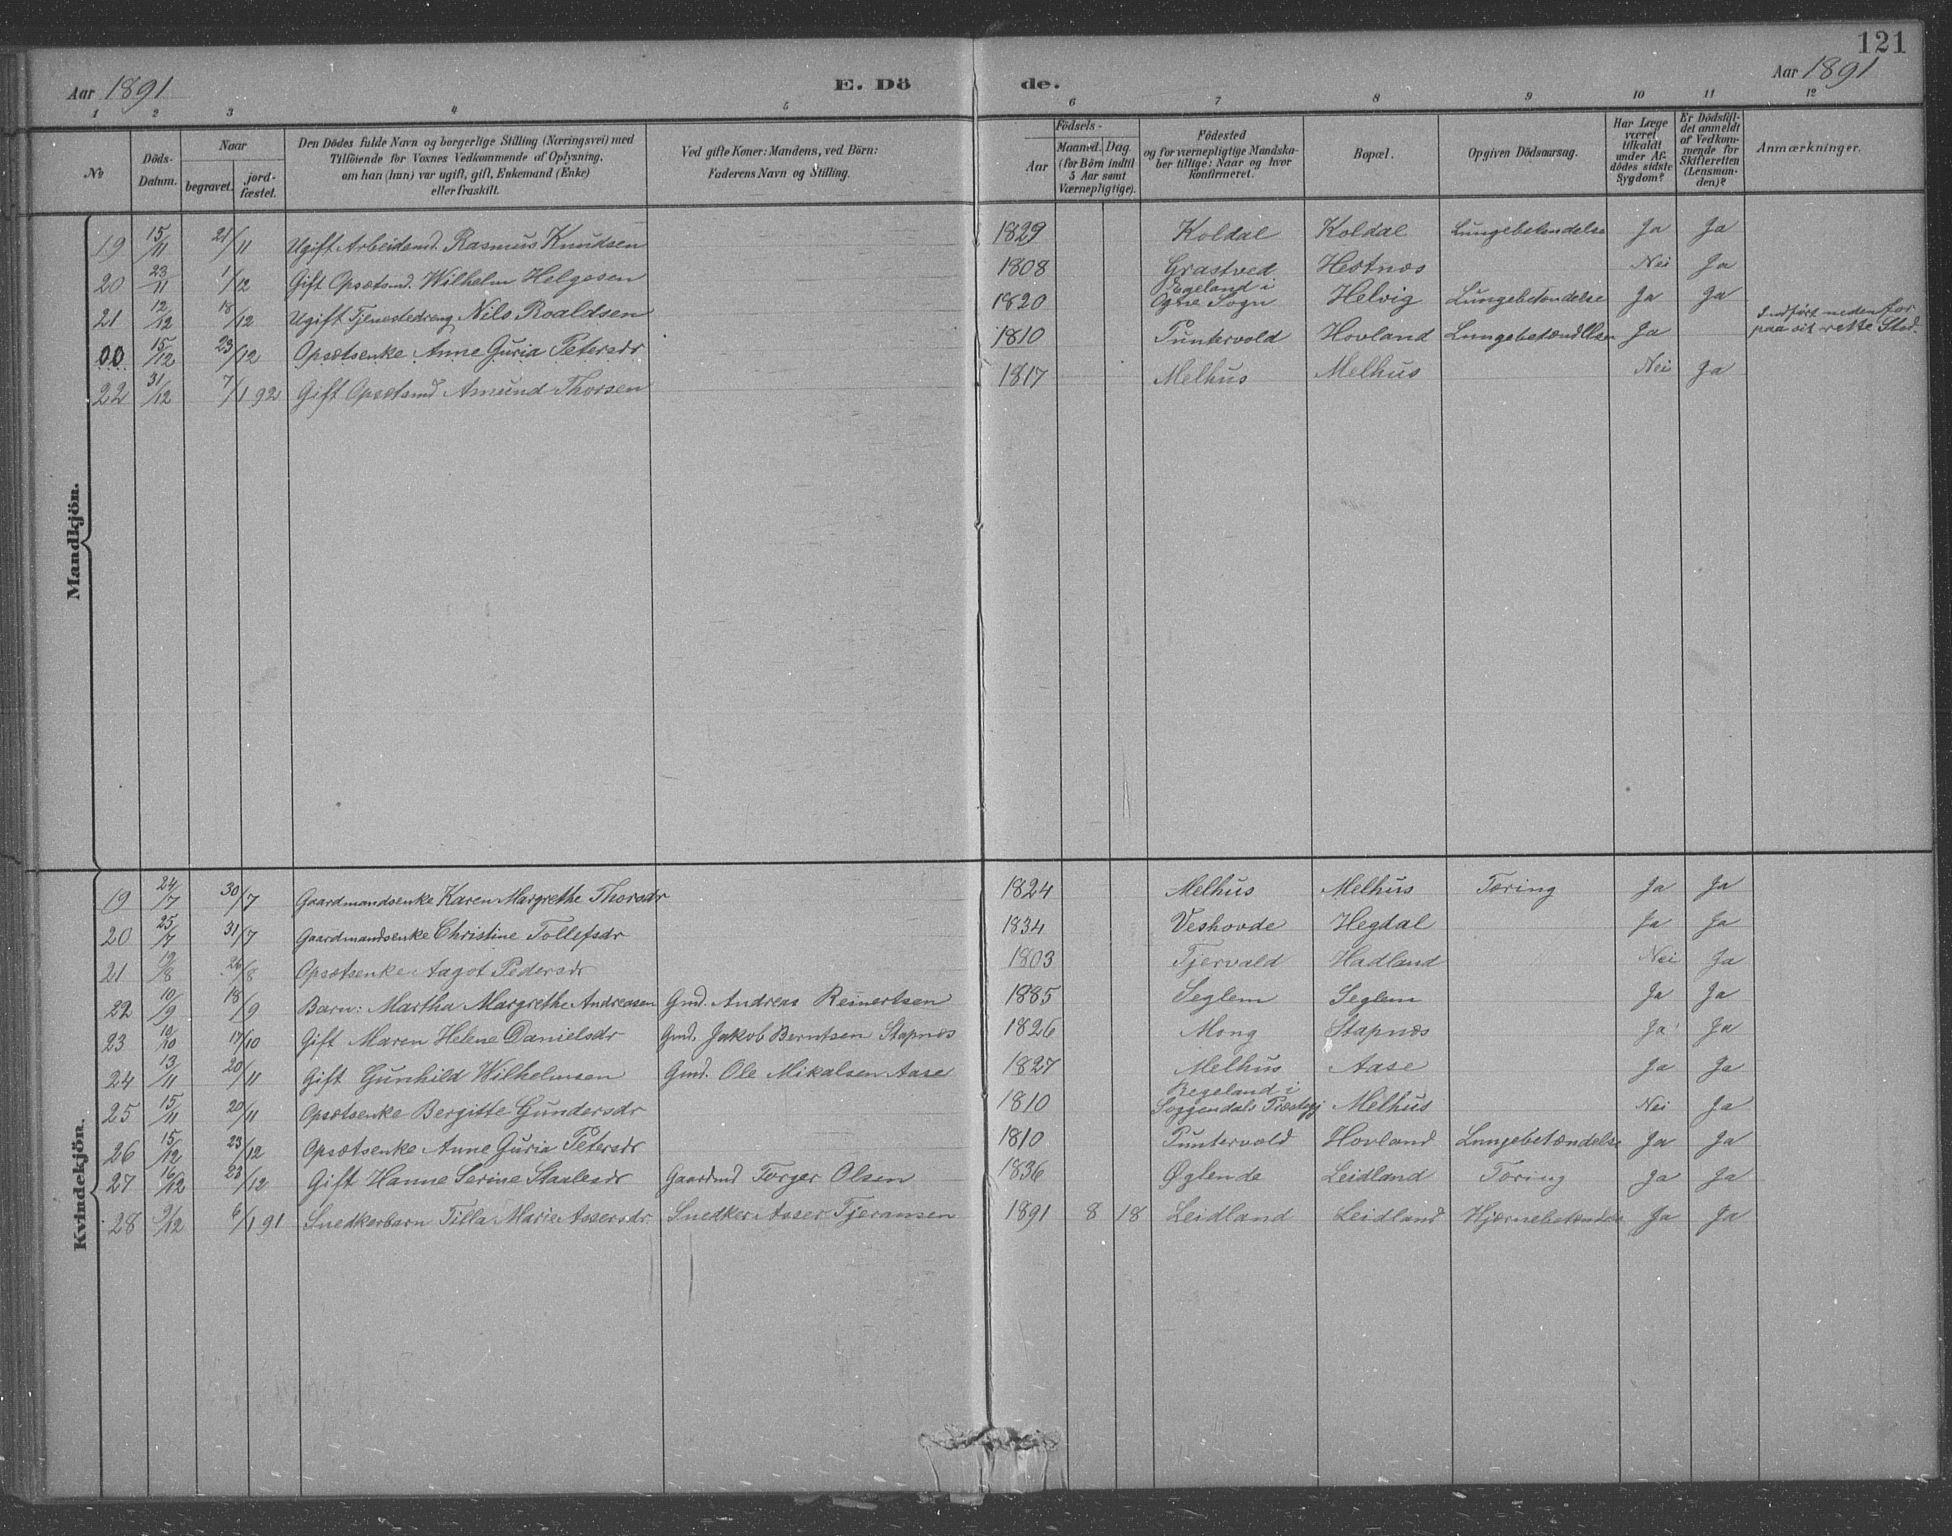 121
Aar 1891 E. Dö de. Aar 1891
1 2 3 4 5 6 7 8 9 10 11 12
No
Döds-Datum.
Naar begravet. jord-fæstet.
Den Dödes fulde Navn og borgerlige Stilling (Næringsvei) med
Tilföiende for Voxnes Vedkommende af Oplysning,
om han (hun) var ugift, gift, Enkemand (Enke)
eller fraskilt.
Ved gifte Koner: Mandens, ved Börn:
Faderens Navn og Stilling.
Födsels-
Aar Maaned. Dag.
(for Börn indtil
5 Aar samt
Værnepligtige).
Födested
og for værnepligtige Mandska-
ber tillige: Naar og hvor
konfirmeret.
Bopæl.
Opgiven Dödsaarsag.
Har Læge
været
tilkaldt
under Af-
dödes sidste
Sygdom?
Er Dödsfal-
det anmeldt
af Vedkom-
mende for
Skifteretten
(Lensman-
den)?
Anmærkninger.
Mandkjön.
19 15/11 21/11 Ugift Arbeidsmd. Rasmus Knudsen 1829 Koldal Koldal Lungebetendelse Ja Ja
20 23/11 1/12 Gift Opsætsmd. Wilhelm Helgesen 1808 Grastved Hestnes Nei Ja
21 12/12 18/12 Ugift Tjenestedreng Nils Roaldsen 1820 Egeland i Ogne Sogn Helvig Lungebetændelse Ja Ja
00 15/12 23/12 Opsætsenke Anne Guria Petersdr 1810 Puntervold Hovland Lungebetændelse Ja Indført nedenfor paa sit rette Sted.
22 31/12 7/1 92 Gift Opsætsmd Amund Thorsen 1817 Melhus Melhus Nei Ja
Kvindekjön.
19 24/7 30/7 Gaardmandsenke Karen Margrethe Thorsdr 1824 Melhus Melhus Tæring Ja Ja
20 25/7 31/7 Gaardmandsenke Christine Tollefsdr 1834 Veshovde Hegdal Ja Ja
21 19/8 26/8 Opsætsenke Aagot Pedersdr 1803 Tjervald Hadland Nei Ja
22 10/9 18/9 Barn: Martha Margrethe Andreasen Gmd. Andreas Reinertsen 1885 Seglem Seglem Ja Ja
23 10/10 17/10 Gift Maren Helene Danielsdr Gmd. Jakob Berntsen Stapnæs 1826 Mong Stapnæs Ja Ja
24 13/11 20/11 Gift Gunhild Wilhelmsen Gmd. Ole Mikalsen Aase 1827 Melhus Aase Ja Ja
25 15/11 20/11 Opsætsenke Bergitte Gundersdr 1810 Regeland i Soggendals Præstegj Melhus Nei Ja
26 15/12 23/12 Opsætsenke Anne Guria Petersdr 1810 Puntervold Hovland Lungebetændelse Ja Ja
27 16/12 23/12 Gift Hanne Serine Staalesdr Gaardmd Torger Olsen 1836 Øglende Leidland Tæring Ja Ja
28 9/12 6/1 91 Snedkerbarn Tilla Marie Assersdr. Snedker Asser Tjeransen 1891 8 18 Leidland Leidland Hjernebetændelse Ja Ja